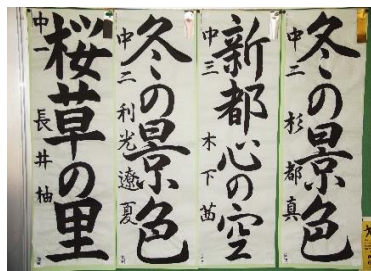 冬の景色
中二 杉都真
新都心の空
中三 木下茜
冬の景色
中二 利光遼夏
桜草の里
中一 長井柚